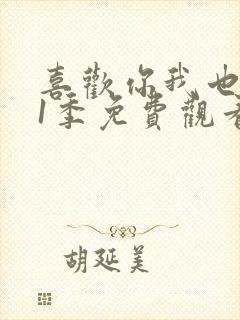 喜歡你我也
1季免費觀看
胡延美